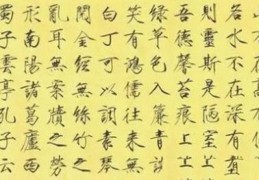 名水不在深有
則靈斯是陋室
吾德馨苔痕上
綠草色入簾青談
笑有鴻儒往來無
白丁可以調素琴
閱金經無絲竹之
亂耳無案牘之勞
形南陽諸葛廬西
蜀子雲亭孔子云